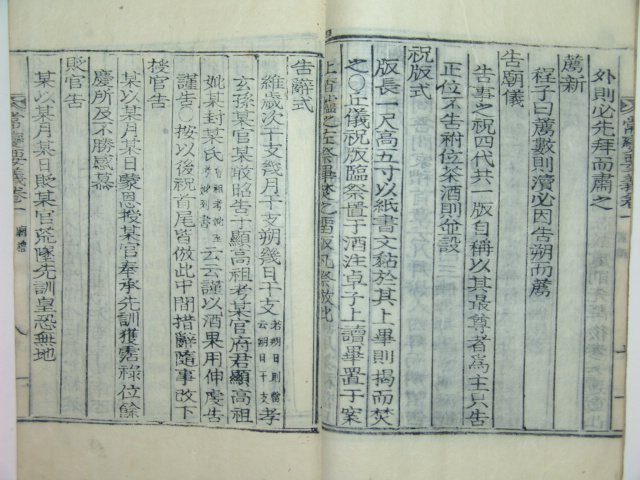 外則必先拜而肅之
薦新
程子曰薦數則瀆必因告朔而薦
告廟儀
告事之祝四代共一版自稱以其最尊者爲主只告
正位不告祔位茶酒則並設
祝版式
版長一尺高五寸以紙書文黏於其上畢則揭而焚
之○正儀祝版臨祭置于酒注卓子上讀畢置于案
上香爐之左祭畢焚之留版凡祭放此
告辭式
維歲次干支幾月干支朔幾日干支 若朔日則當云朔日干支 孝
玄孫某官某敢昭告于顯高祖考某官府君顯高祖
妣某封某氏 云云謹以酒果用伸虔告
謹告○按以後祝首尾皆倣此中間措辭隨事改下
授官告
某以某月某日蒙恩授某官奉承先訓獲霑祿位餘
慶所及不勝感慕
貶官告
某以某月某日貶某官荒墜先訓皇恐無地
常變要義卷一